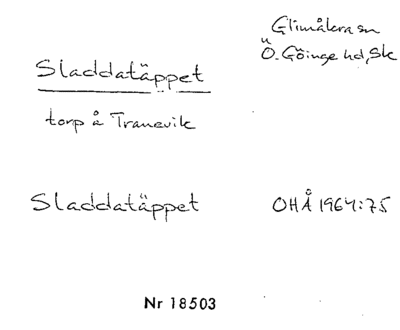 Glimåkra sn
Ö. Göinge hd, Sk
Sladdatäppet
torp å Tranevik
Sladdatäppet OHÅ 1964:75
Nr 18503